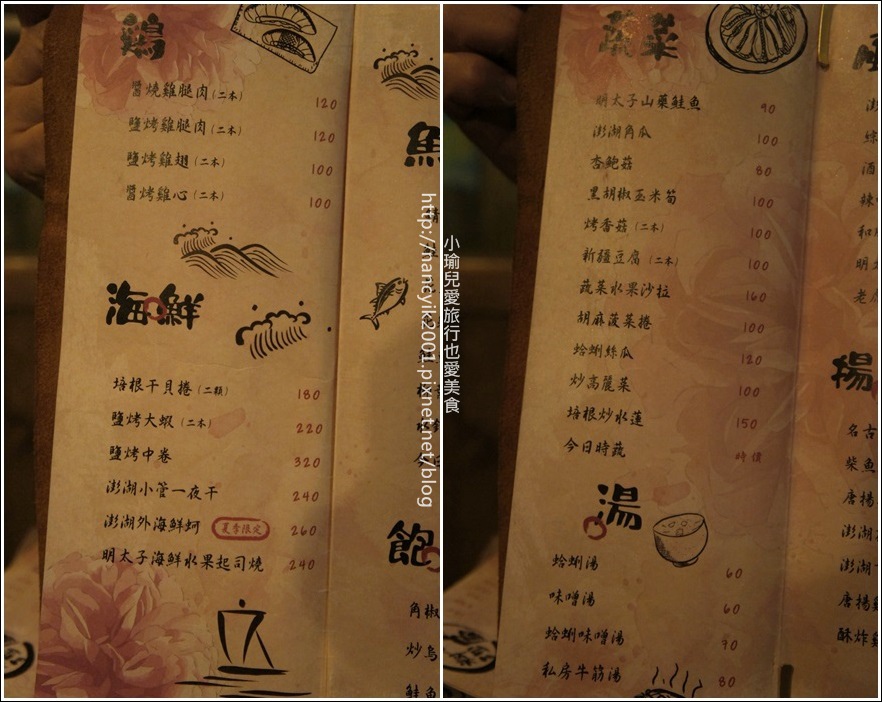 鶏
醬燒雞腿肉(二本) 120
鹽烤雞腿肉(二本) 120
鹽烤雞翅(二本) 100
醬烤雞心(二本) 100
海鮮
培根干貝捲(二顆) 180
鹽烤大蝦(二本) 220
鹽烤中卷 320
澎湖小管一夜干 240
澎湖外海鮮蚵 夏季限定 260
明太子海鮮水果起司燒 240
魚
飽
角椒
炒烏
鮭魚
小瑜兒愛旅行也愛美食
http://nancyik2001.pixnet.net/blog
蔬菜
明太子山藥鮭魚 90
澎湖角瓜 100
杏鮑菇 80
黑胡椒玉米筍 100
烤香菇(二本) 100
新疆豆腐(二本) 100
蔬菜水果沙拉 160
胡麻菠菜捲 100
蛤蜊絲瓜 120
炒高麗菜 100
培根炒水蓮 150
今日時蔬 時價
湯
蛤蜊湯 60
味噌湯 60
蛤蜊味噌湯 90
私房牛筋湯 80
酒
辣
和
明太
老
揚
名古
柴魚
唐揚
澎湖
澎湖
唐揚
酥炸